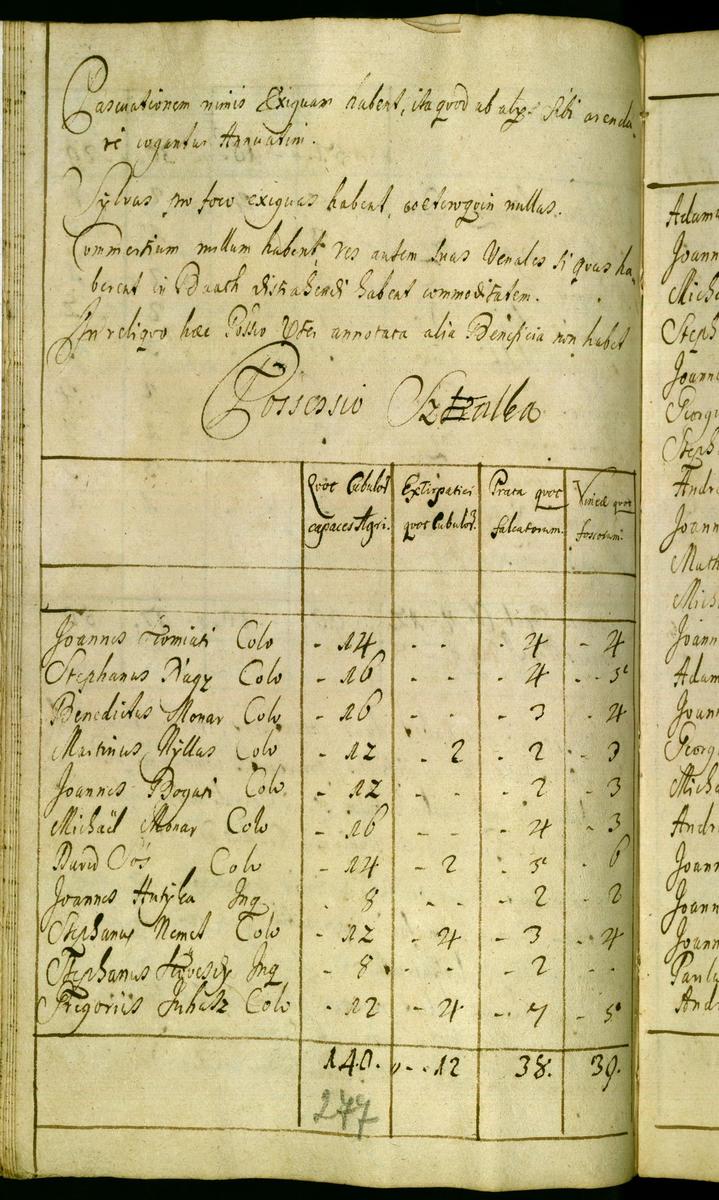 Pascuationem nimis Exiguam habent, ita quod ab alys sibi arenda-
re coguntur Annuatim.
Sylvas pro foco exiguas habent, coeteroquin nullas.
Commertium nullum habent, res autem suas Venales si quas ha-
berent in Baach distrahendi habent commoditatem.
In reliquo haec Possio annotata alia Beneficia non habet
Possessio Szalka
Quot Cubulor capaces Agri. Extirpatici quot Cubulor. Prata quot falcatorum. Vineae quot fossorum.
Joannes Colo - 14 - - - 4 - 4
Stephanus Nagy Colo - 16 - - - 4 - - 5
Benedictus Monar Colo - 16 - - - 3 - 4
Martinus Nyllas Colo - 12 - 2 - 2 - 3
Joannes Bogari Colo - 12 - - - 2 - 3
Michaël Monar Colo - 16 - - - 4 - 3
David Eös Colo - 14 - 2 - 5 - 6
Joannes Hutyka Inq - 8 - - - 2 - 2
Stephanus Nemet Colo - 12 - 4 - 3 - 4
Stephanus Inq - 8 - - - 2 - -
Gregorius Juhasz Colo - 12 - 4 - 7 - 5
140. - - 12 38. 39.
277
Adam
Joann
Mich
Steph
Joann
Georg
Steph
Andr
Joann
Math
Mich
Joann
Adam
Joann
Georg
Micha
Andr
Joann
Joann
Joann
Paul
And